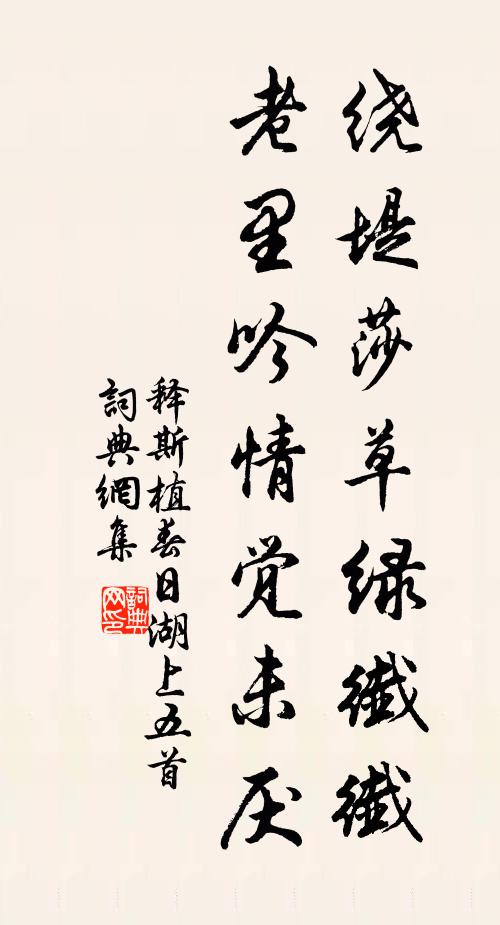 绕堤莎草绿纖纖
老里吟情觉未厌
释斯植春日湖上五首
詞典網集
詞典网印